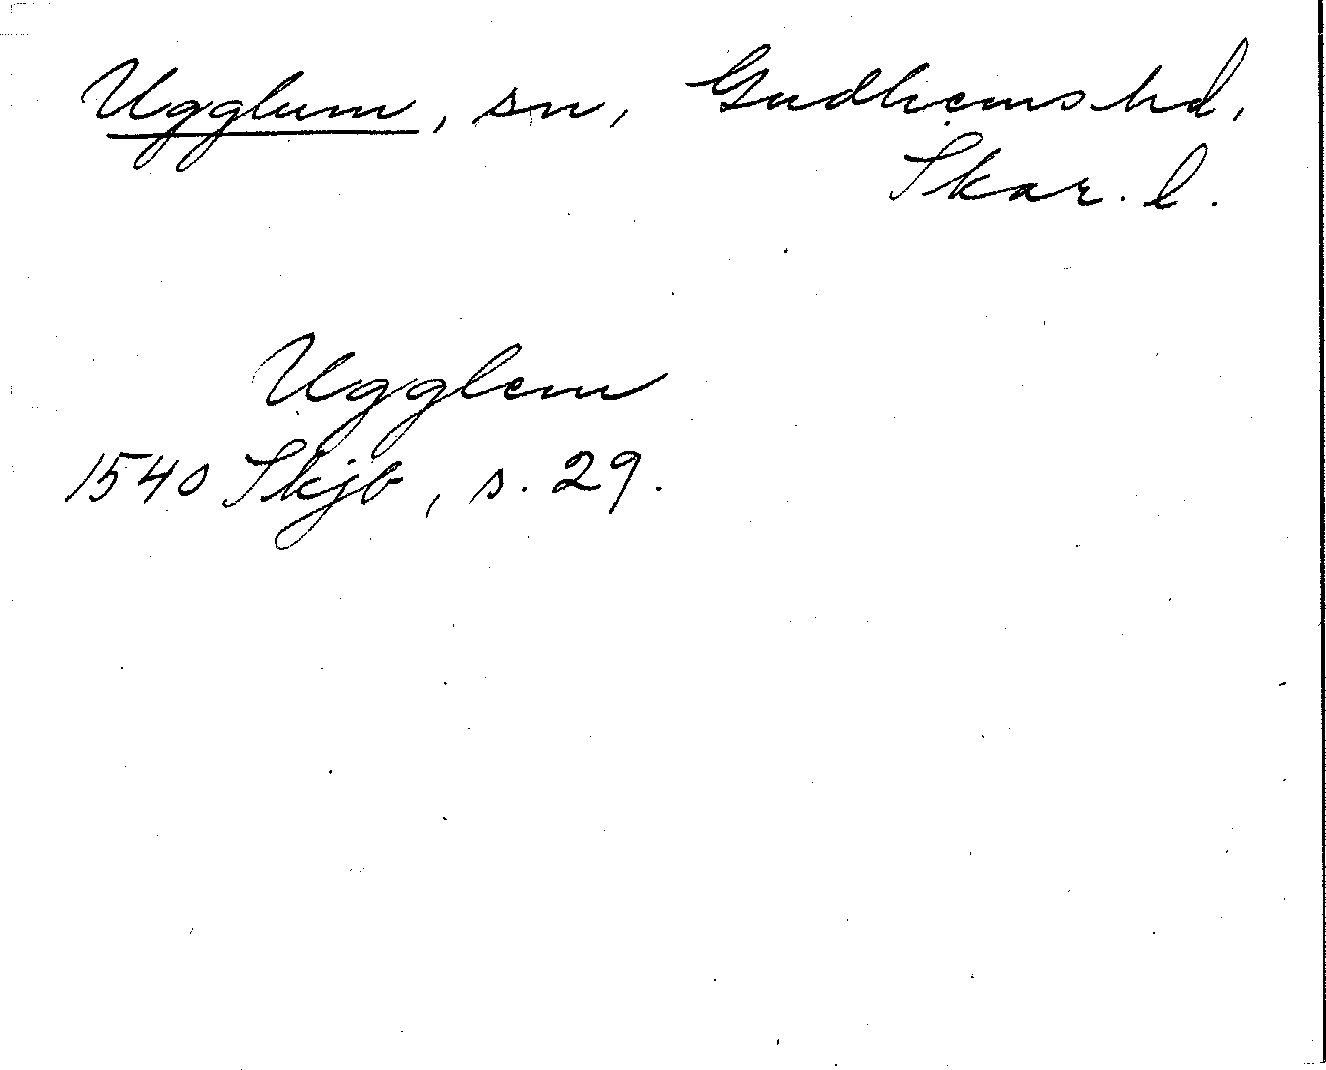 Ugglum, sn, Gudhems hd,
Skar. l.
Ugglem
1540 Skjb, s. 29.